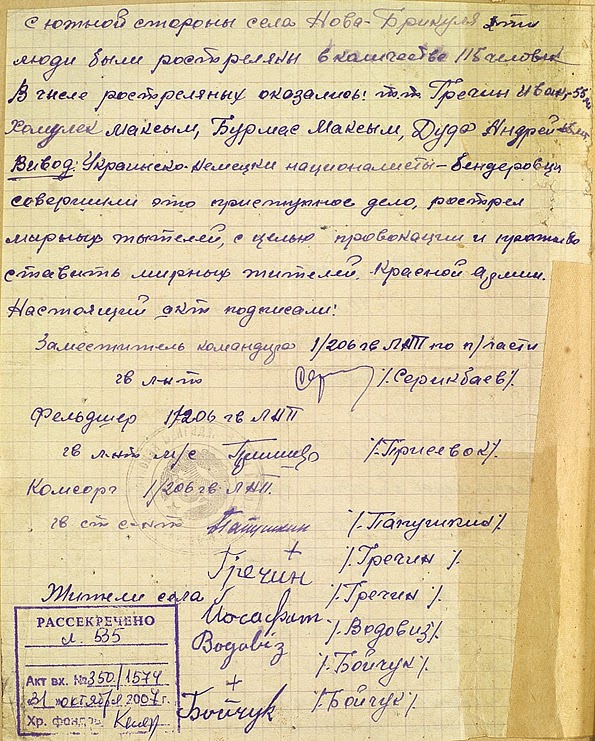 с южной стороны села Нова-Брикуля эти
люди были ростреляны в количестве 115 человек
В числе ростреляных оказались: т.т Гречин Иван-55
Хомулек Максым, Бурмас Максым, Дуда Андрей
Вивод: Украинско-немецки националисты-бендеровци
совершили это приступное дело, рострел
мирных жытелей, с целью провокации и противо
ставить мирных жителей. Красной армии.
Настоящий акт подписали:
Заместитель командира 1/206 гв ЛАП по п/части
гв л-нт /.Серикбаев/.
Фельдшер 1/206 гв ЛАП
гв л-нт м/с /.Присевок/.
Комсорг 1/206 гв ЛАП.
гв ст с-нт Папушкин /.Папушкин/.
+
Гречин /.Гречин/.
Жители села
Йосафат /.Гречин/.
Водовіз /.Водовиз/.
/.Бойчук/.
+
Бойчук /.Бойчук/.
РАССЕКРЕЧЕНО
л. 535
Акт вх. № 350/1574
31 октября 2007 г.
Хр. фондов